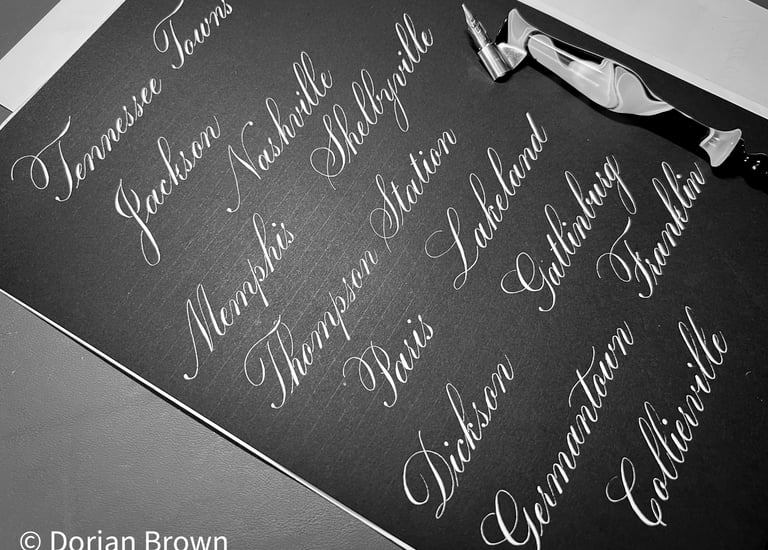 Tennessee Towns
Jackson Nashville Shelbyville
Memphis Thompson Station Lakeland
Paris Gatlinburg Franklin
Dickson Germantown Collierville
© Dorian Brown